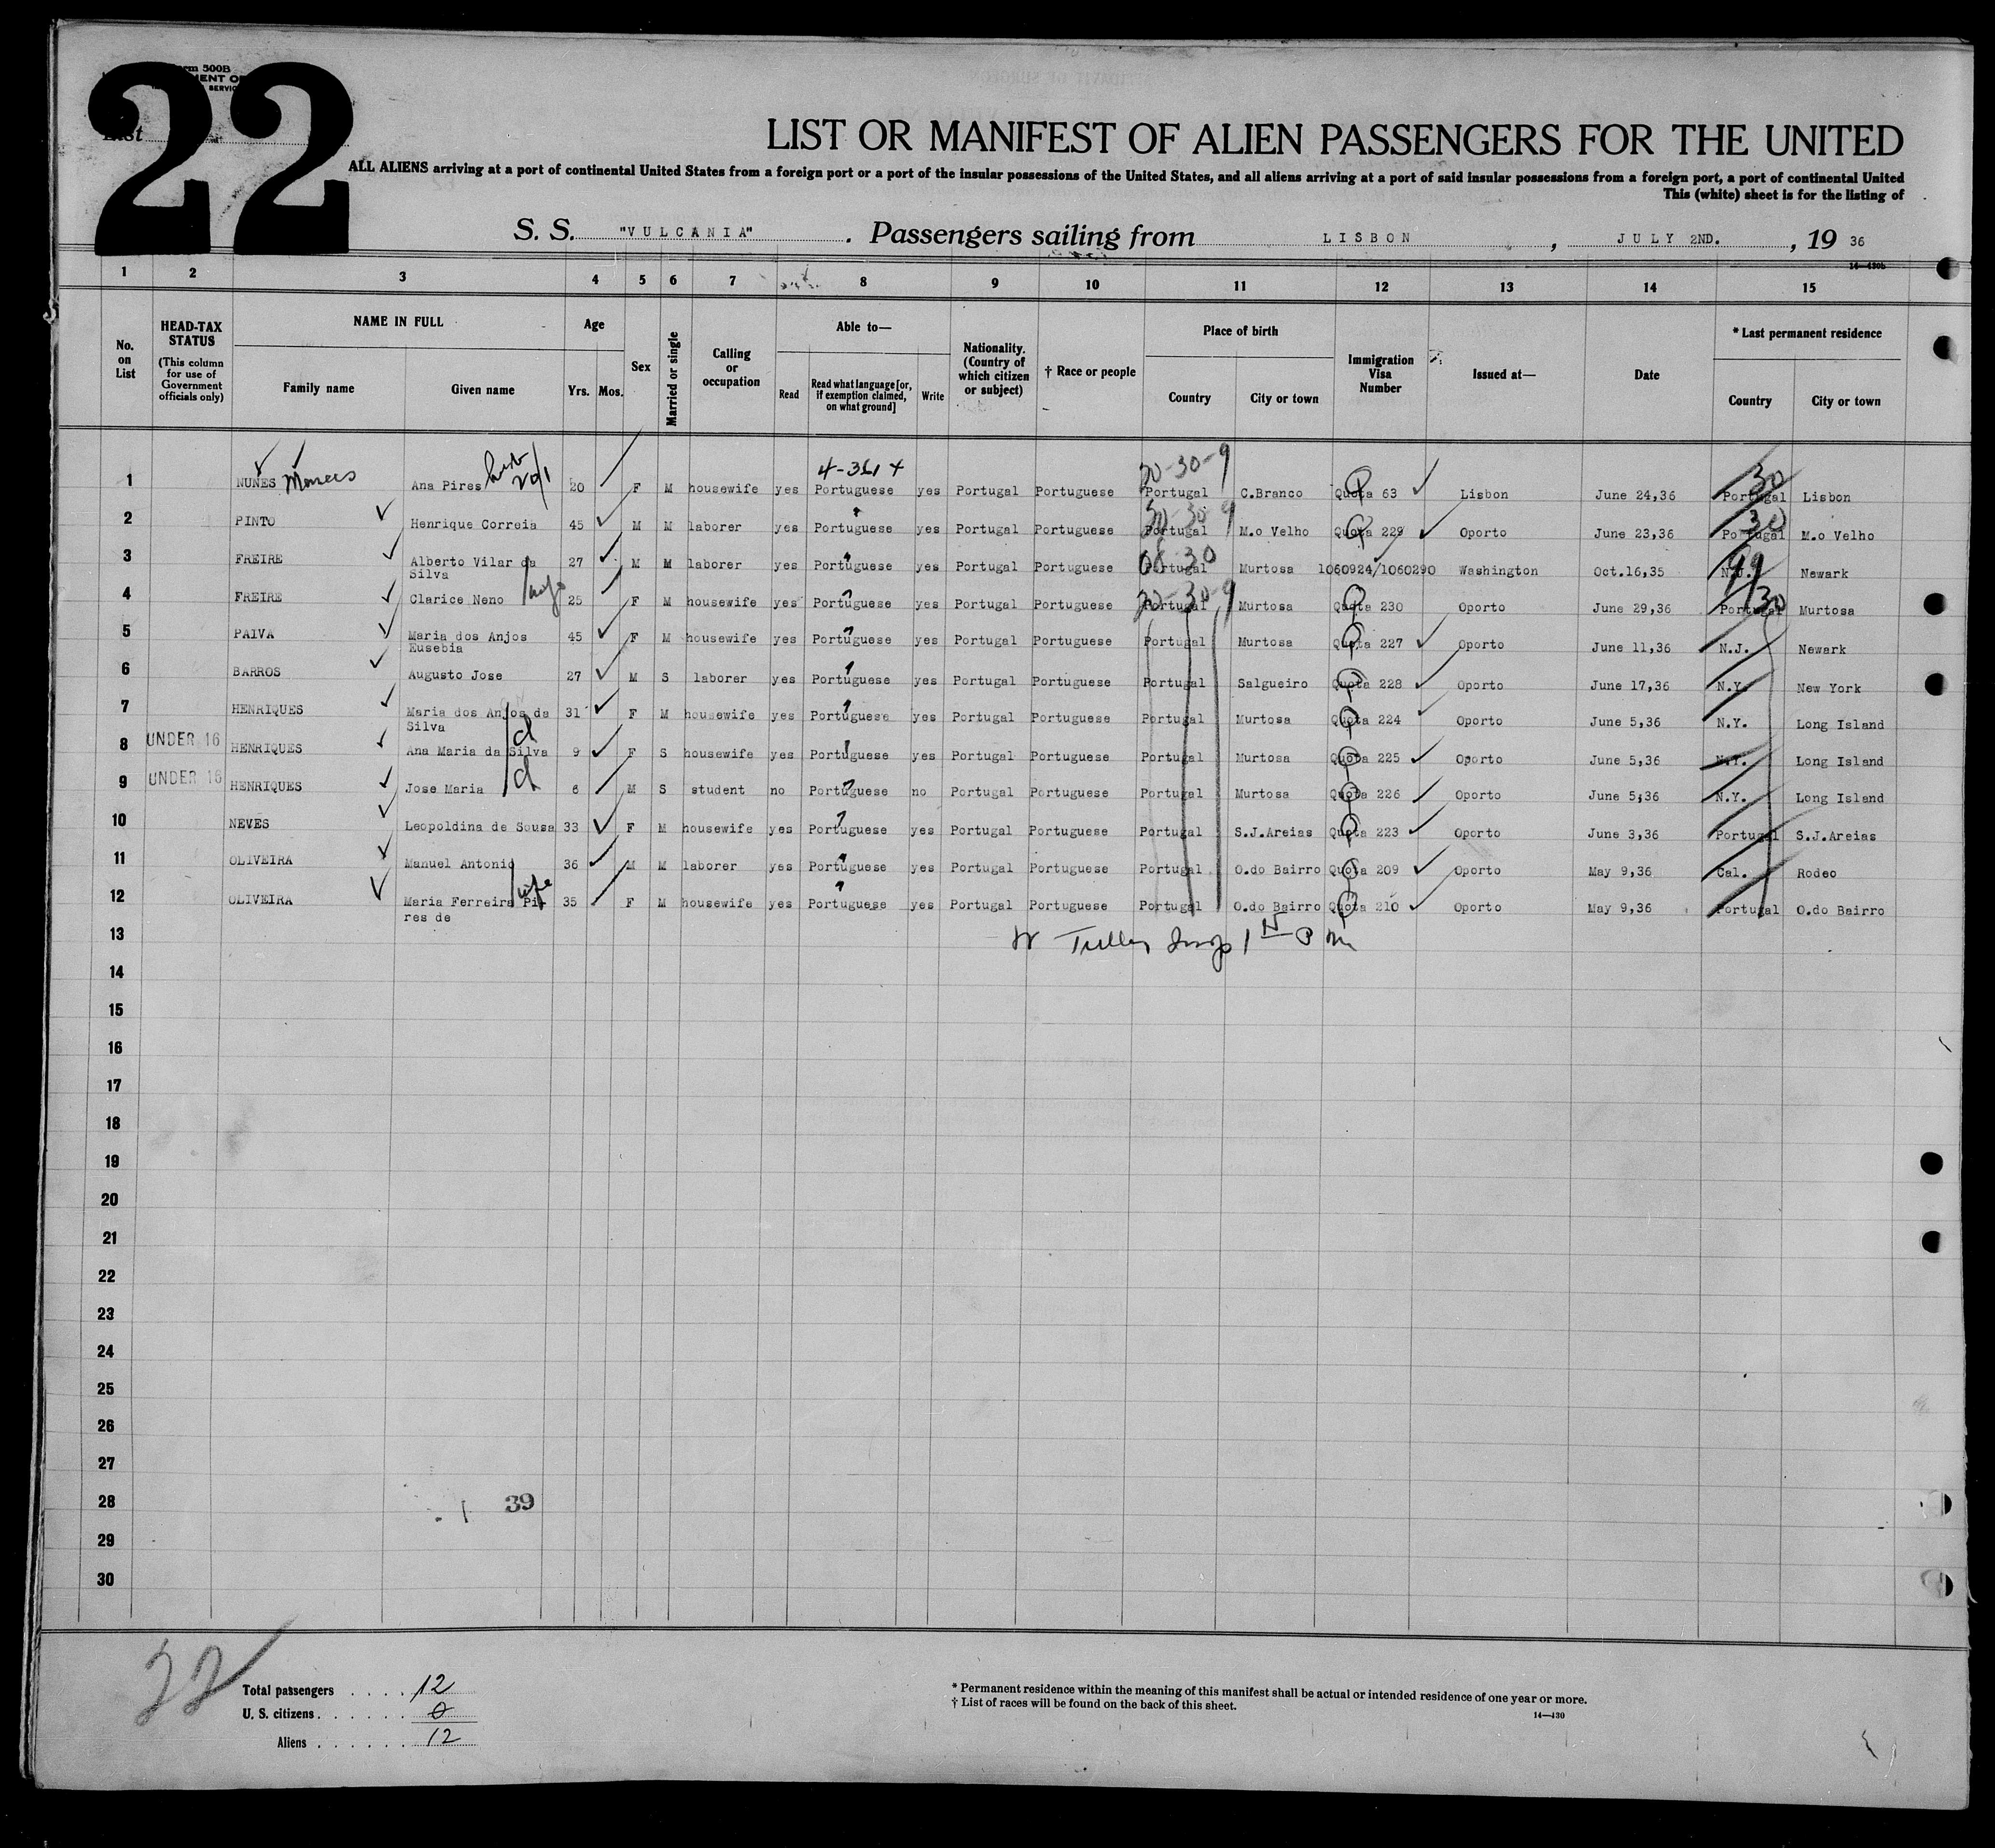 22
Form 500B
List
LIST OR MANIFEST OF ALIEN PASSENGERS FOR THE UNITED
ALL ALIENS arriving at a port of continental United States from a foreign port or a port of the insular possessions of the United States, and all aliens arriving at a port of said insular possessions from a foreign port, a port of continental United
This (white) sheet is for the listing of
S. S. "VULCANIA". Passengers sailing from LISBON, JULY 2ND., 19 36
14—430b
1 2 3 4 5 6 7 8 9 10 11 12 13 14 15
No. on List
HEAD-TAX STATUS
(This column for use of Government officials only)
NAME IN FULL
Family name
Given name
Age
Yrs.
Mos.
Sex
Married or single
Calling or occupation
Able to—
Read
Read what language [or, if exemption claimed, on what ground]
Write
Nationality. (Country of which citizen or subject)
† Race or people
Place of birth
Country
City or town
Immigration Visa Number
Issued at—
Date
* Last permanent residence
Country
City or town
4-361 + 20-30-9 30
1 NUNES Ana Pires 20 F M housewife yes Portuguese yes Portugal Portuguese Portugal C.Branco Quota 63 Lisbon June 24,36 Portugal Lisbon
30-30-9 30
2 PINTO Henrique Correia 45 M M laborer yes Portuguese yes Portugal Portuguese Portugal M.o Velho Quota 229 Oporto June 23,36 Portugal M.o Velho
99
3 FREIRE Alberto Vilar da Silva 27 M M laborer yes Portuguese yes Portugal Portuguese Portugal Murtosa 1060924/1060290 Washington Oct.16,35 N.J. Newark
20-30-9 30
4 FREIRE Clarice Neno 25 F M housewife yes Portuguese yes Portugal Portuguese Portugal Murtosa Quota 230 Oporto June 29,36 Portugal Murtosa
5 PAIVA Maria dos Anjos Eusebia 45 F M housewife yes Portuguese yes Portugal Portuguese Portugal Murtosa Quota 227 Oporto June 11,36 N.J. Newark
6 BARROS Augusto Jose 27 M S laborer yes Portuguese yes Portugal Portuguese Portugal Salgueiro Quota 228 Oporto June 17,36 N.Y. New York
7 HENRIQUES Maria dos Anjos da Silva 31 F M housewife yes Portuguese yes Portugal Portuguese Portugal Murtosa Quota 224 Oporto June 5,36 N.Y. Long Island
8 UNDER 16 HENRIQUES Ana Maria da Silva d 9 F S housewife yes Portuguese yes Portugal Portuguese Portugal Murtosa Quota 225 Oporto June 5,36 N.Y. Long Island
9 UNDER 16 HENRIQUES Jose Maria d 6 M S student no Portuguese no Portugal Portuguese Portugal Murtosa Quota 226 Oporto June 5,36 N.Y. Long Island
10 NEVES Leopoldina de Sousa 33 F M housewife yes Portuguese yes Portugal Portuguese Portugal S.J.Areias Quota 223 Oporto June 3,36 Portugal S.J.Areias
11 OLIVEIRA Manuel Antonio 36 M M laborer yes Portuguese yes Portugal Portuguese Portugal O.do Bairro Quota 209 Oporto May 9,36 Cal. Rodeo
12 OLIVEIRA Maria Ferreira Pires de wife 35 F M housewife yes Portuguese yes Portugal Portuguese Portugal O.do Bairro Quota 210 Oporto May 9,36 Portugal O.do Bairro
13
14
15
16
17
18
19
20
21
22
23
24
25
26
27
28 39
29
30
22
Total passengers . . . . 12
U. S. citizens . . . . . . 0
Aliens . . . . . . 12
* Permanent residence within the meaning of this manifest shall be actual or intended residence of one year or more.
† List of races will be found on the back of this sheet.
14—430